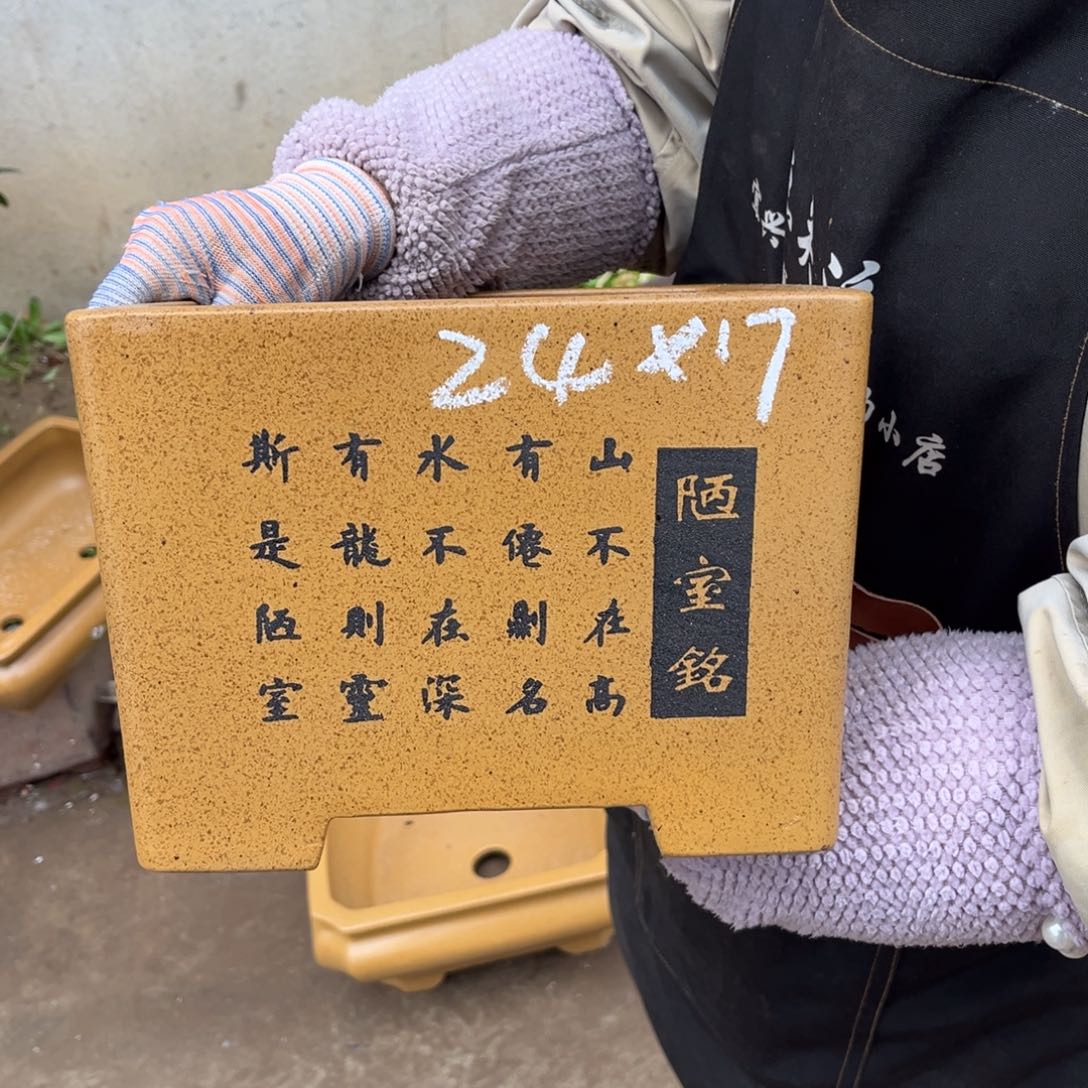 24×17
陋室銘
山不在高
有僊則名
水不在深
有龍則靈
斯是陋室
小店